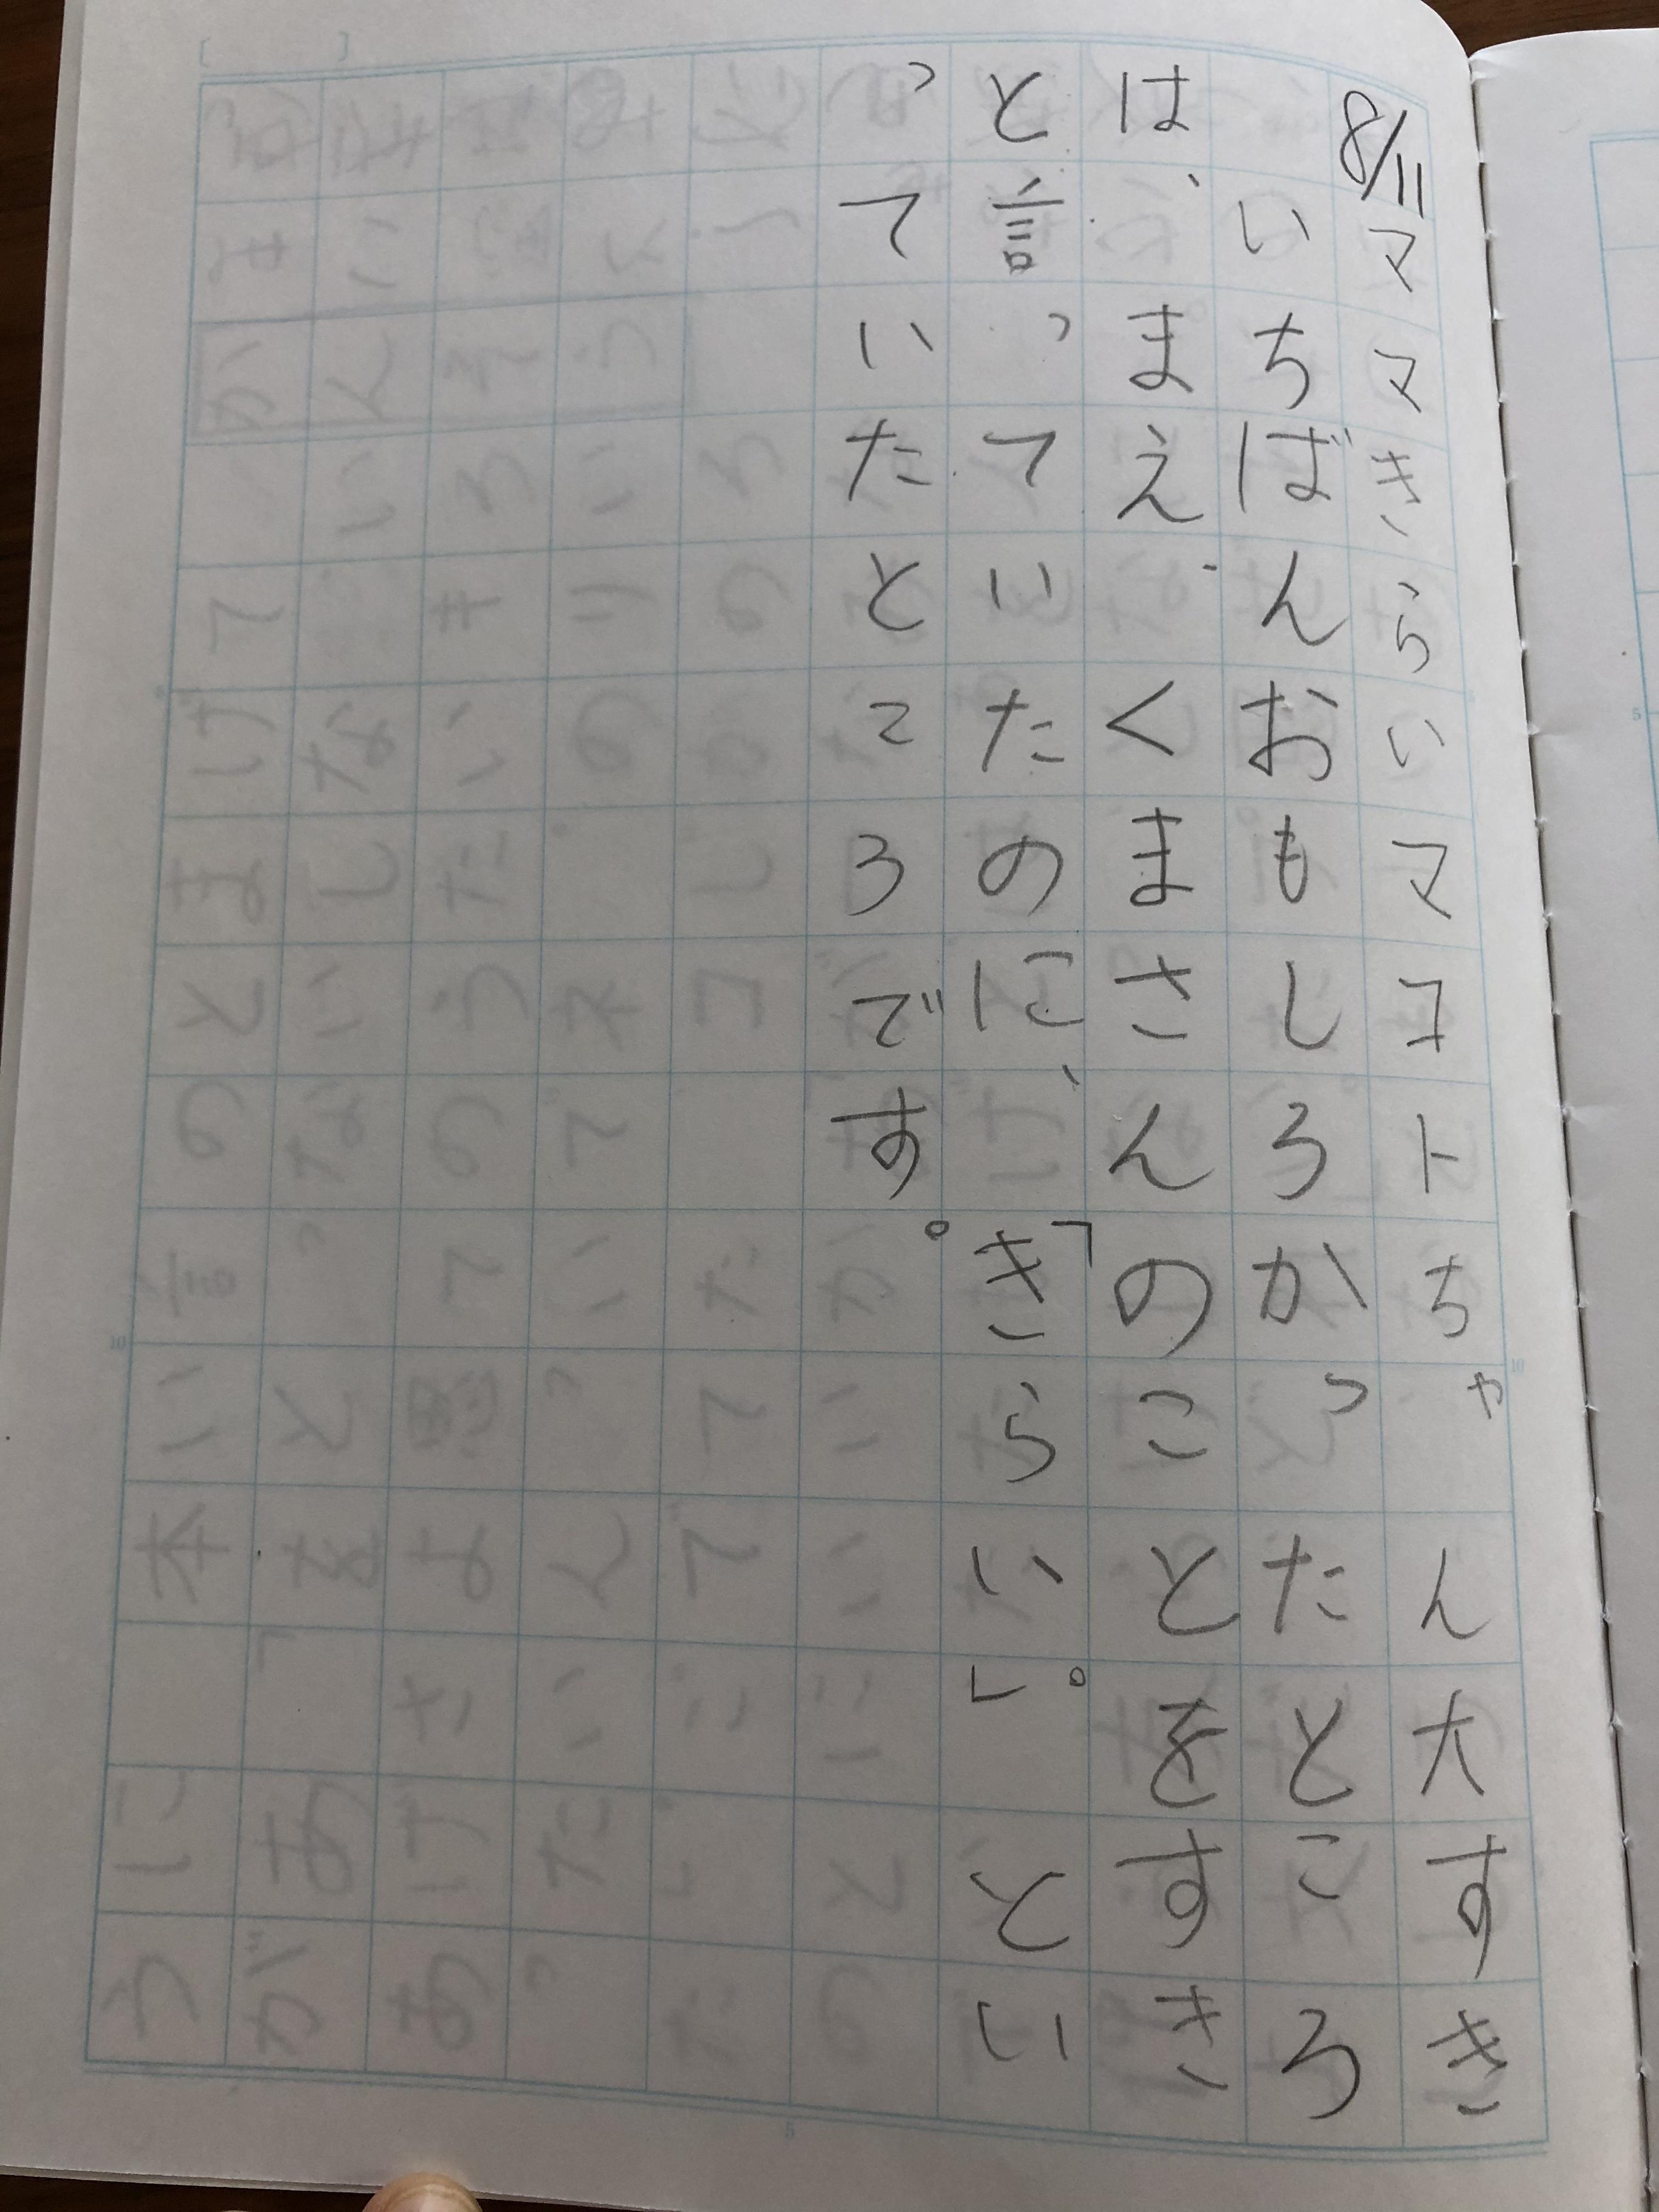 8/11ママきらいマコトちゃん大すき
いちばんおもしろかったところ
は、まえ、くまさんのことをすき
と言っていたのに、「きらい。」とい
っていたところです。